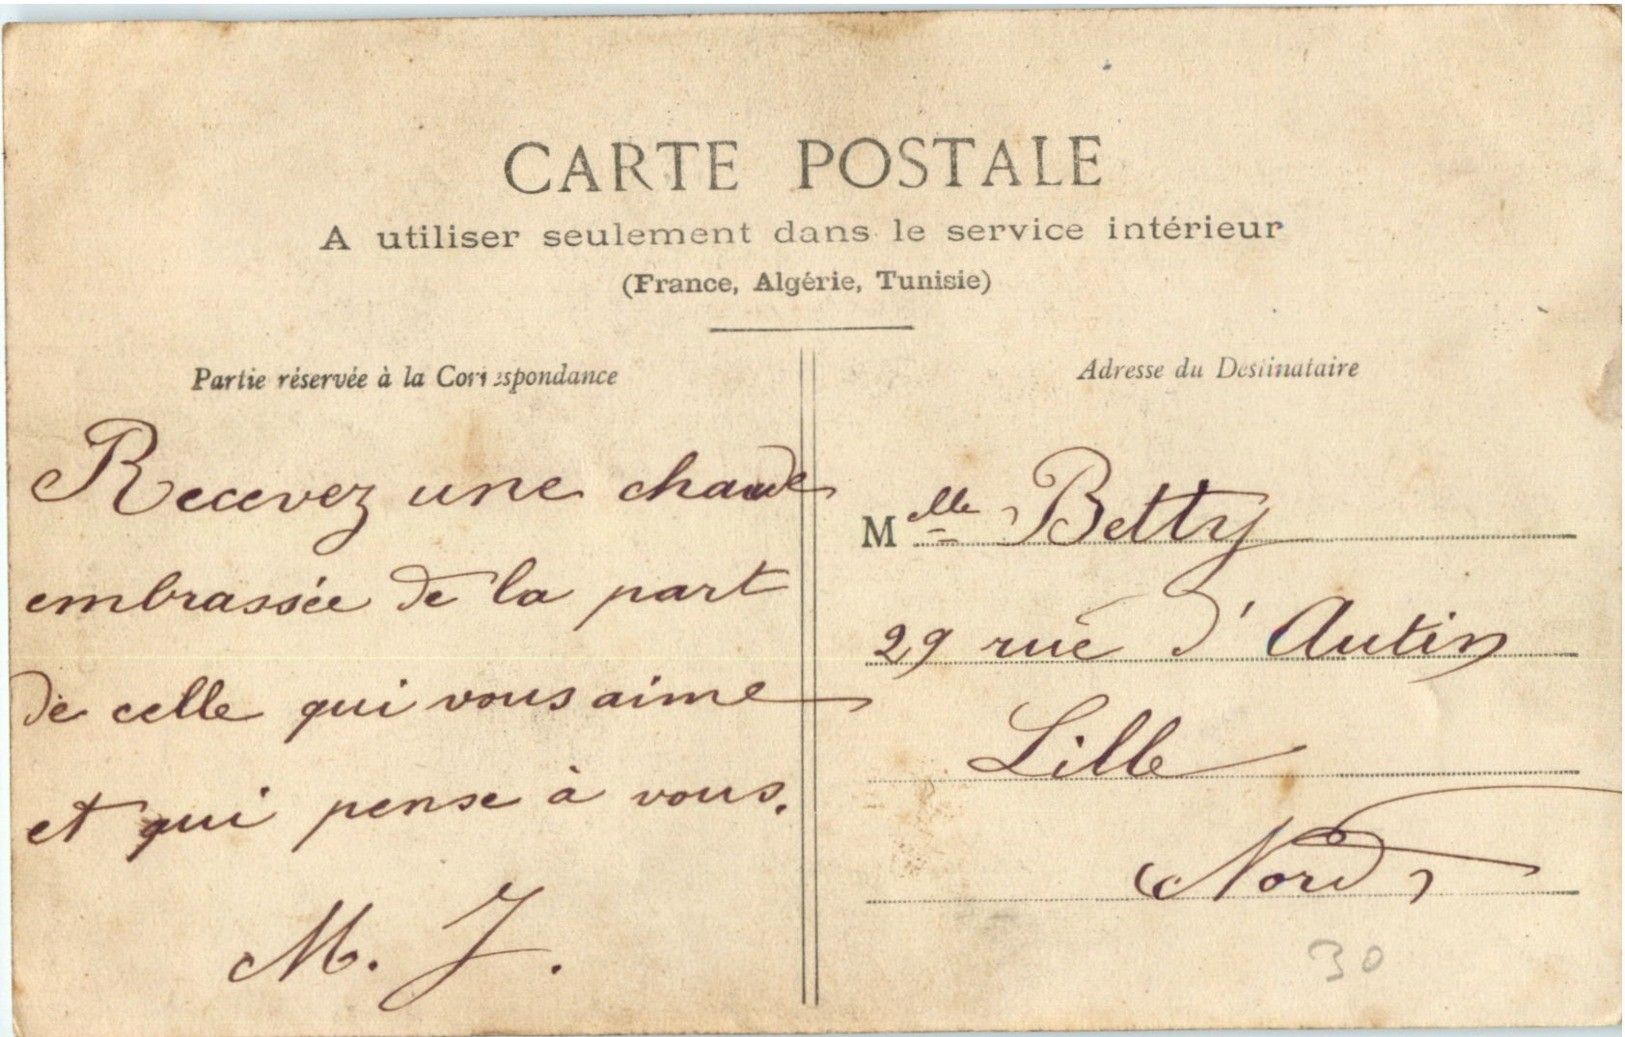 CARTE POSTALE
A utiliser seulement dans le service intérieur
(France, Algérie, Tunisie)
Partie réservée à la Correspondance
Recevez une chaude
embrassée de la part
de celle qui vous aime
et qui pense à vous.
M. J.
Adresse du Destinataire
Melle Betty
29 rue d'Autin
Lille
(Nord)
30